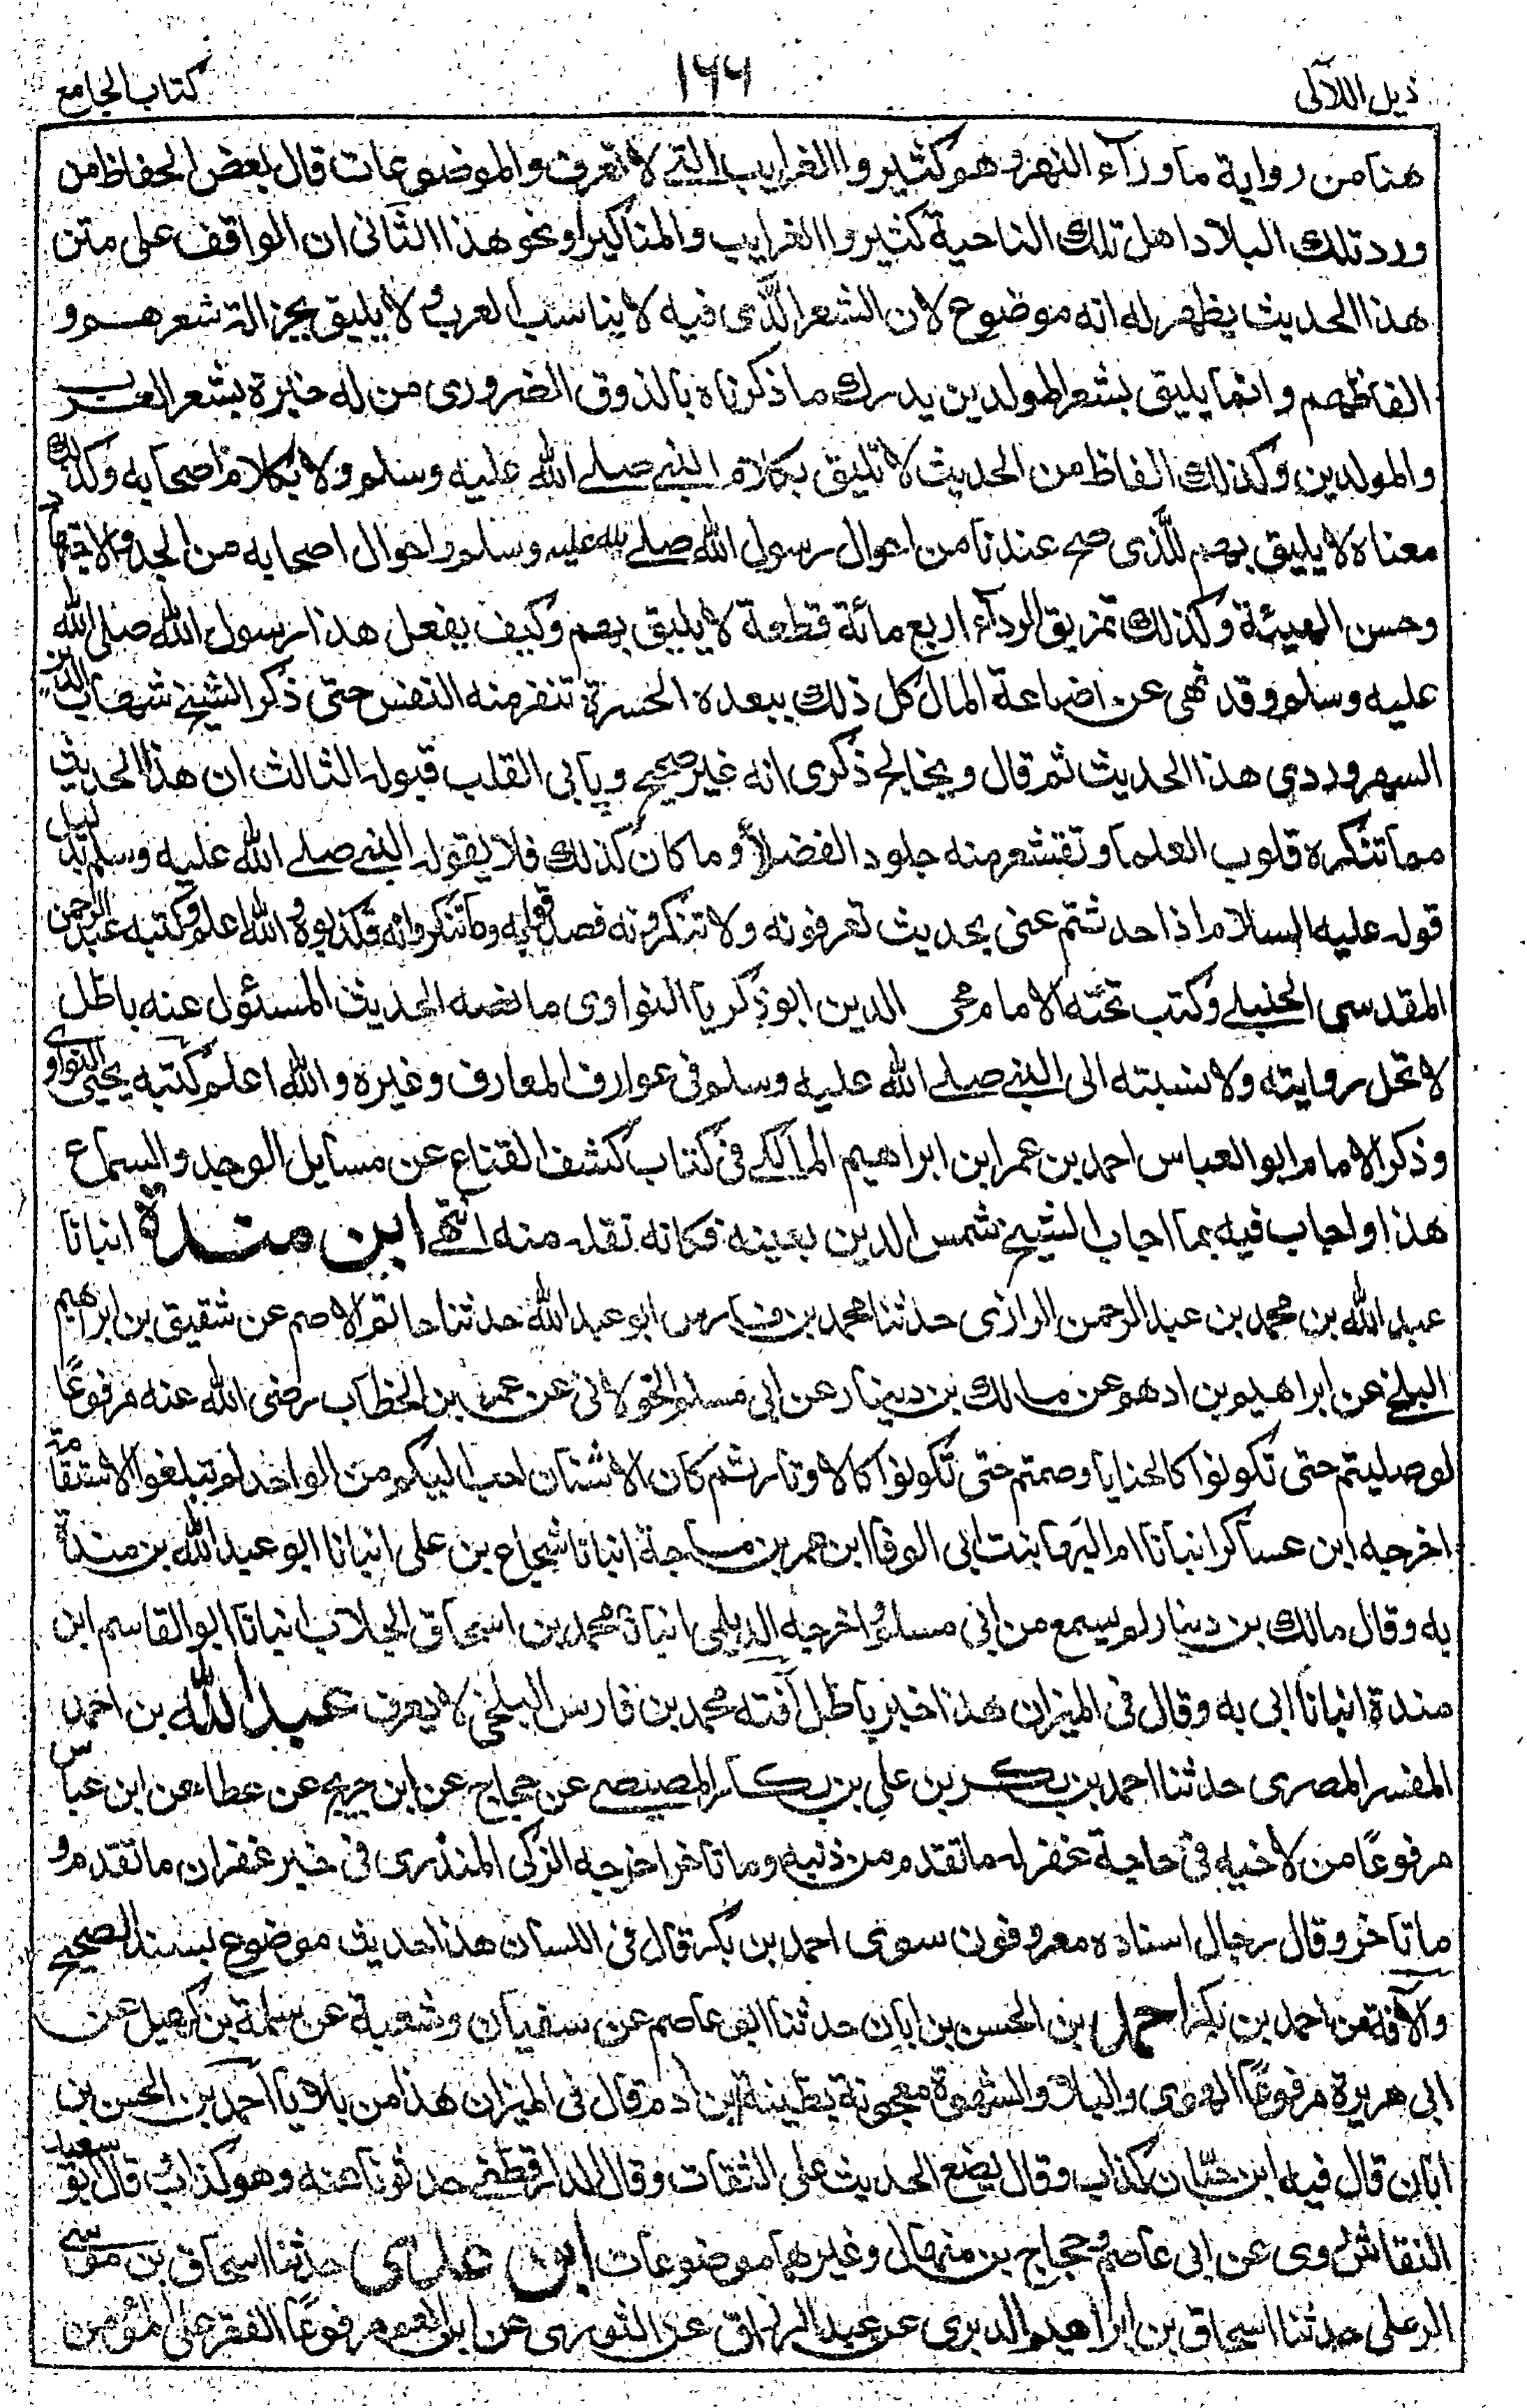 ذيل اللآلى ١٦٦ كتاب الجامع
هنا من رواية ما ورآء النهر وهو كثير والغرايب التے لا تعرف والموضوعات قال بعض الحفاظ من
ورد تلك البلاد اهل تلك الناحية كثير والغرايب والمناكير او نحو هذا الثانى ان الواقف على متن
هذا الحديث يظهر له انه موضوع لان الشعر الذى فيه لا يناسب العرب ولا يليق بجزالة شعرهم و
الفاظهم وانما يليق بشعر المولدين يدرك ما ذكرناه بالذوق الضرورى من له خبرة بشعر العرب
والمولدين وكذلك الفاظ من الحديث لا تليق بكلام النبے صلے الله عليه وسلم ولا بكلام اصحابه وكذلك
معناه لا يليق بهم للذى صح عندنا من احوال رسول الله صلے لله عليه وسلم واحوال اصحابه من الجد والاجتهاد
وحسن الهيئة وكذلك تمزيق الردآء اربع مائة قطعة لا يليق بهم وكيف يفعل هذا رسول الله صلى الله
عليه وسلم وقد نهى عن اضاعة المال كل ذلك ببعدة الحسرة تنفر منه النفس حتى ذكر الشيخ شهاب الدين
السهروردى هذا الحديث ثم قال ويخالج ذكرى انه غير صحيح ويابى القلب قبوله الثالث ان هذا الحديث
مما تنكره قلوب العلما وتقشعر منه جلود الفضلأ وما كان كذلك فلا يقوله النبے صلے الله عليه وسلم بدليل
قوله عليه السلام اذا حدثتم عنى بحديث تعرفونه ولا تنكرونه فصدقوا به وما تنكرونه فكذبوه والله اعلم وكتبه عبد الرحمن
المقدسى الحنبلے وكتب تحته الامام محى الدين ابو زكريا النواوى ما نصه الحديث المسئول عنه باطل
لا تحل روايته ولا نسبته الى النبے صلے الله عليه وسلم فى عوارف المعارف وغيره والله اعلم كتبه يحيى النواوى
وذكر الامام ابو العباس احمد بن عمر ابن ابراهيم المالكے فى كتاب كشف القناع عن مسايل الوجد والسماع
هذا واجاب فيه بما اجاب الشيخ شمس الدين بعينه فكانه نقله منه انتهے ابن مندة انبانا
عبد الله بن محمد بن عبد الرحمن الرازى حدثنا محمد بن فارس ابو عبد الله حدثنا حاتم الاصم عن شقيق بن ابرهيم
البلخے عن ابراهيم بن ادهم عن مالك بن دينار عن ابى مسلم الخولانى عن عمر بن الخطاب رضى الله عنه مرفوعًا
لو صليتم حتى تكونوا كالحنايا وصمتم حتى تكونوا كالاوتار ثم كان الاثنان احب اليكم من الواحد لم تبلغوا الاستقامة
اخرجه ابن عساكر انبانا ام البها بنت ابى الوفا ابن عمر بن ماجة انبانا شجاع بن على انبانا ابو عبد الله بن مندة
به وقال مالك بن دينار لم يسمع من ابى مسلم اخرجه الديلمى انبانا محمد بن اسحاق الجلاب انبانا ابو القاسم ابن
مندة انبانا ابى به وقال فى الميزان هذا خبر باطل آفته محمد بن فارس البلخى لا يعرف عبد الله بن احمد
المفسر المصرى حدثنا احمد بن بكر بن على بن بكار المصيصے عن حجاج عن ابن جريج عن عطاء عن ابن عباس
مرفوعًا من لاخيه فى حاجة غفر له ما تقدم من ذنبه وما تاخر اخرجه الزكى المنذرى فى خبر غفران ما تقدم و
ما تاخر وقال رجال اسناده معروفون سوى احمد بن بكر قال فى اللسان هذا حديث موضوع بسند الصحيح
والآفة من احمد بن بكر احمد بن الحسن بن ابان حدثنا ابو عاصم عن سفيان وشعبة عن سلمة بن كهيل عن
ابى هريرة مرفوعًا الهوى والبلاء والشهوة معجونة بطينة ابن ادم قال فى الميزان هذا من بلايا احمد بن الحسن بن
ابان قال فيه ابن حبان كذاب وقال يضع الحديث على الثقات وقال الدارقطنے حدثونا عنه وهو كذاب قال ابو سعيد
النقاش روى عن ابى عاصم وحجاج بن منهال وغيرهما موضوعات ابن عدى حدثنا اسحاق بن موسے
الرملى حدثنا اسحاق بن ابراهيم الدبرى عن عبد الرزاق عن الثورى عن ابن مرفوعًا الفقر على المؤمن